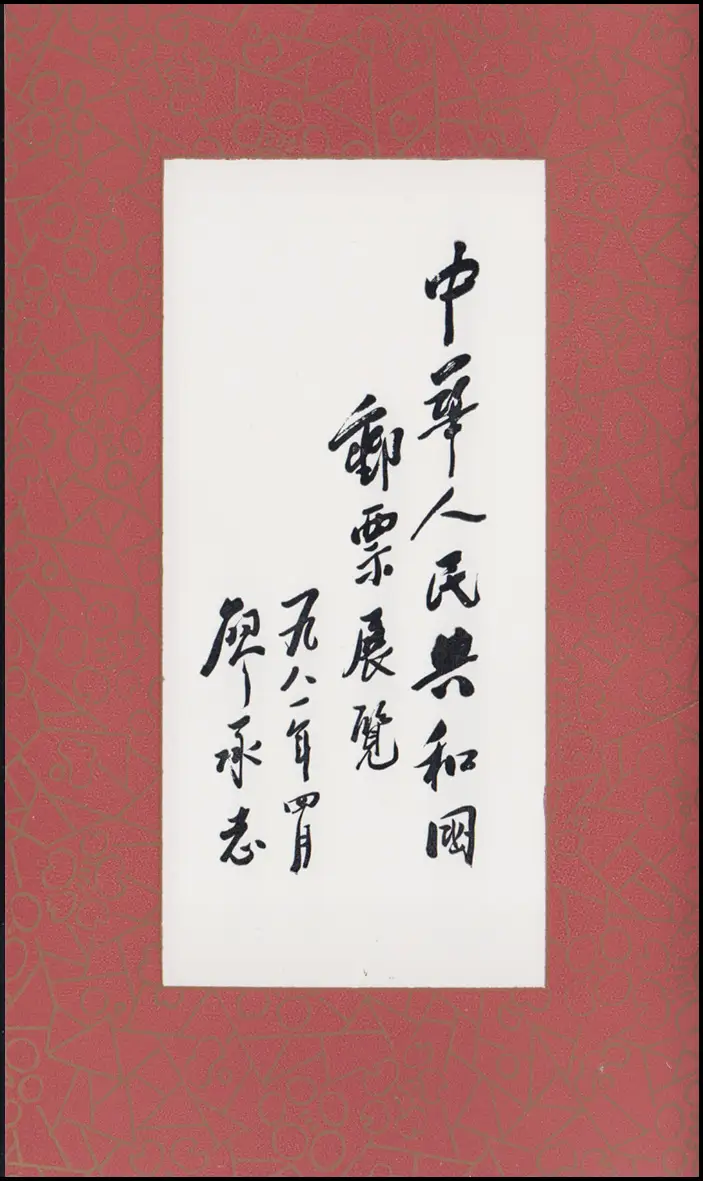 中華人民共和國
郵票展覽
一九八一年四月
廖承志